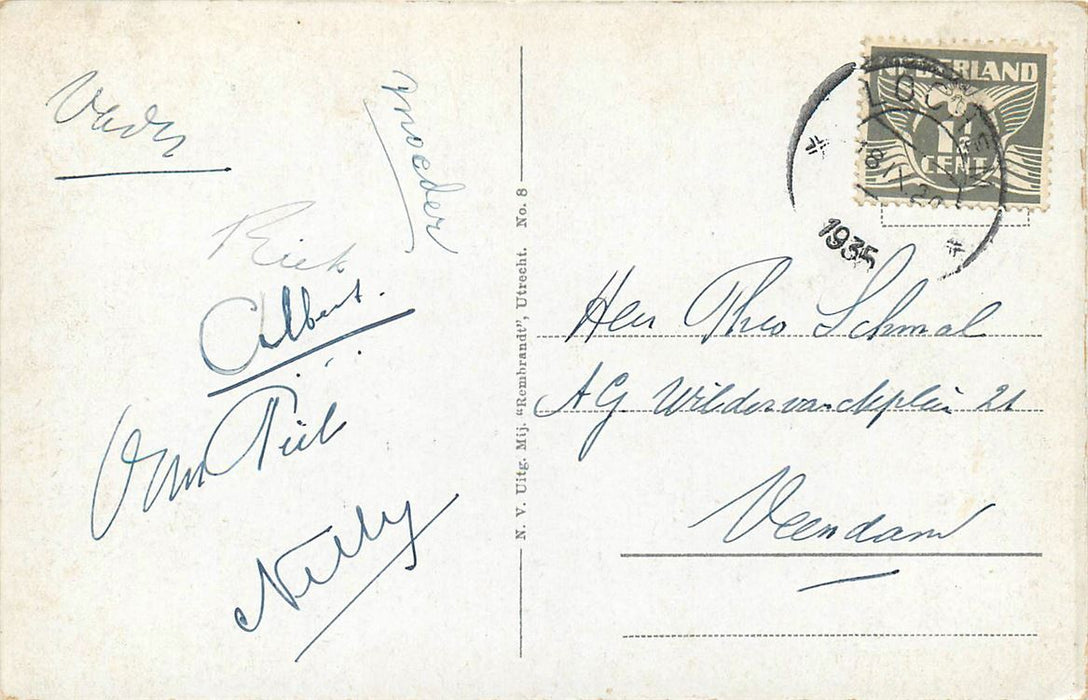 Vader
moeder
Riek
Albert.
Oom Piet
Nelly
N. V. Uitg. Mij. “Rembrandt”, Utrecht. No. 8
NEDERLAND
1½
CENT
LOCHEM
1935
Heer Theo Schmal
A G Wildervanckplein 21
Veendam